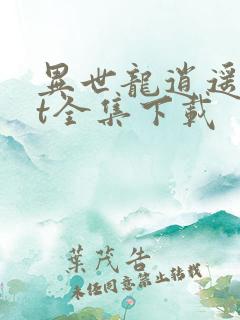 異世龍逍遥
t全集下載
葉茂告
未經同意禁止转載